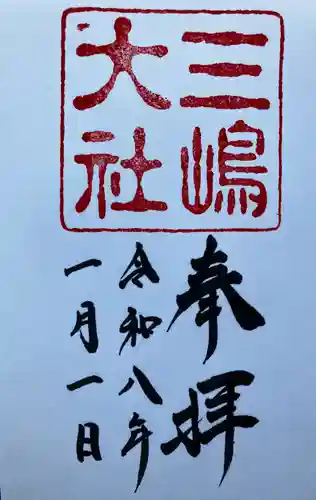 三嶋
大社
奉拝
令和八年
一月一日